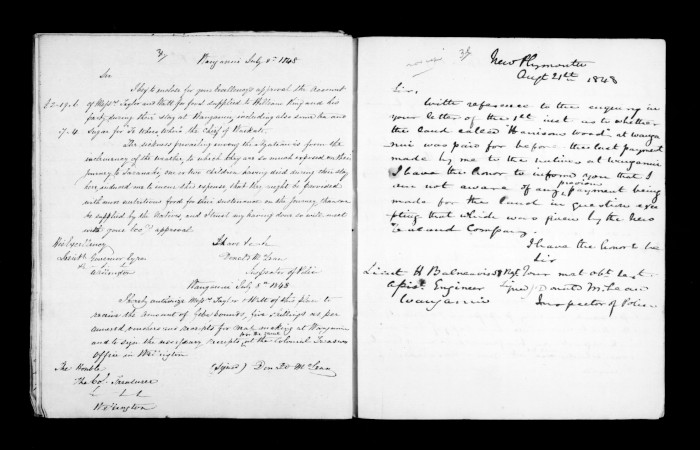 31
Wanganui July 8th 1848
Sir
I beg to enclose for your Excellency's approval the Account
of Messrs Taylor and Watt for food supplied to William King and his
party during their stay at Wanganui, including also some tea and
Sugar for Te Whero the Chief of
The sickness prevailing among the Natives from the
inclemency of the weather, to which they are so much exposed on their
journey to Taranaki, one or two children having died during their stay
here, induced me to incur this expense, that they might be provided
with more nutritious food for their sustenance on the journey, than can
be supplied by the Natives, and I trust my having done so will meet
with your approval
His Excellency
I have &c
Lieut Governor Eyre
Donald McLean
Wellington
Inspector of Police
Wanganui July 8th 1848
I hereby authorize Messrs Taylor & Watt of this place to
receive the amount of pounds, five shillings as per
annexed vouchers and receipts for at Wanganui
and to sign the necessary receipts for the same at the Colonial Treasury
Office in Wellington
The Honble
(Signed) Donald McLean
The Col. Treasurer
Wellington
32
New Plymouth
Augt 21st 1848
Sir,
With reference to the enquiry in
your letter of the 1st inst as to whether
the land called "Harrisons wood" at Wanga
nui was paid for before the last payment
made by me to the natives at Wanganui
I have the honor to inform you that I
am not aware of any previous payment being
made for the land in question exce
pting that which was given by the New
Zealand Company.
I have the honor to be
Sir
Lieut H Balneavis 58 Regt Your most obt Servt
Engineer Signed) Donald McLean
Wanganui Inspector of Police